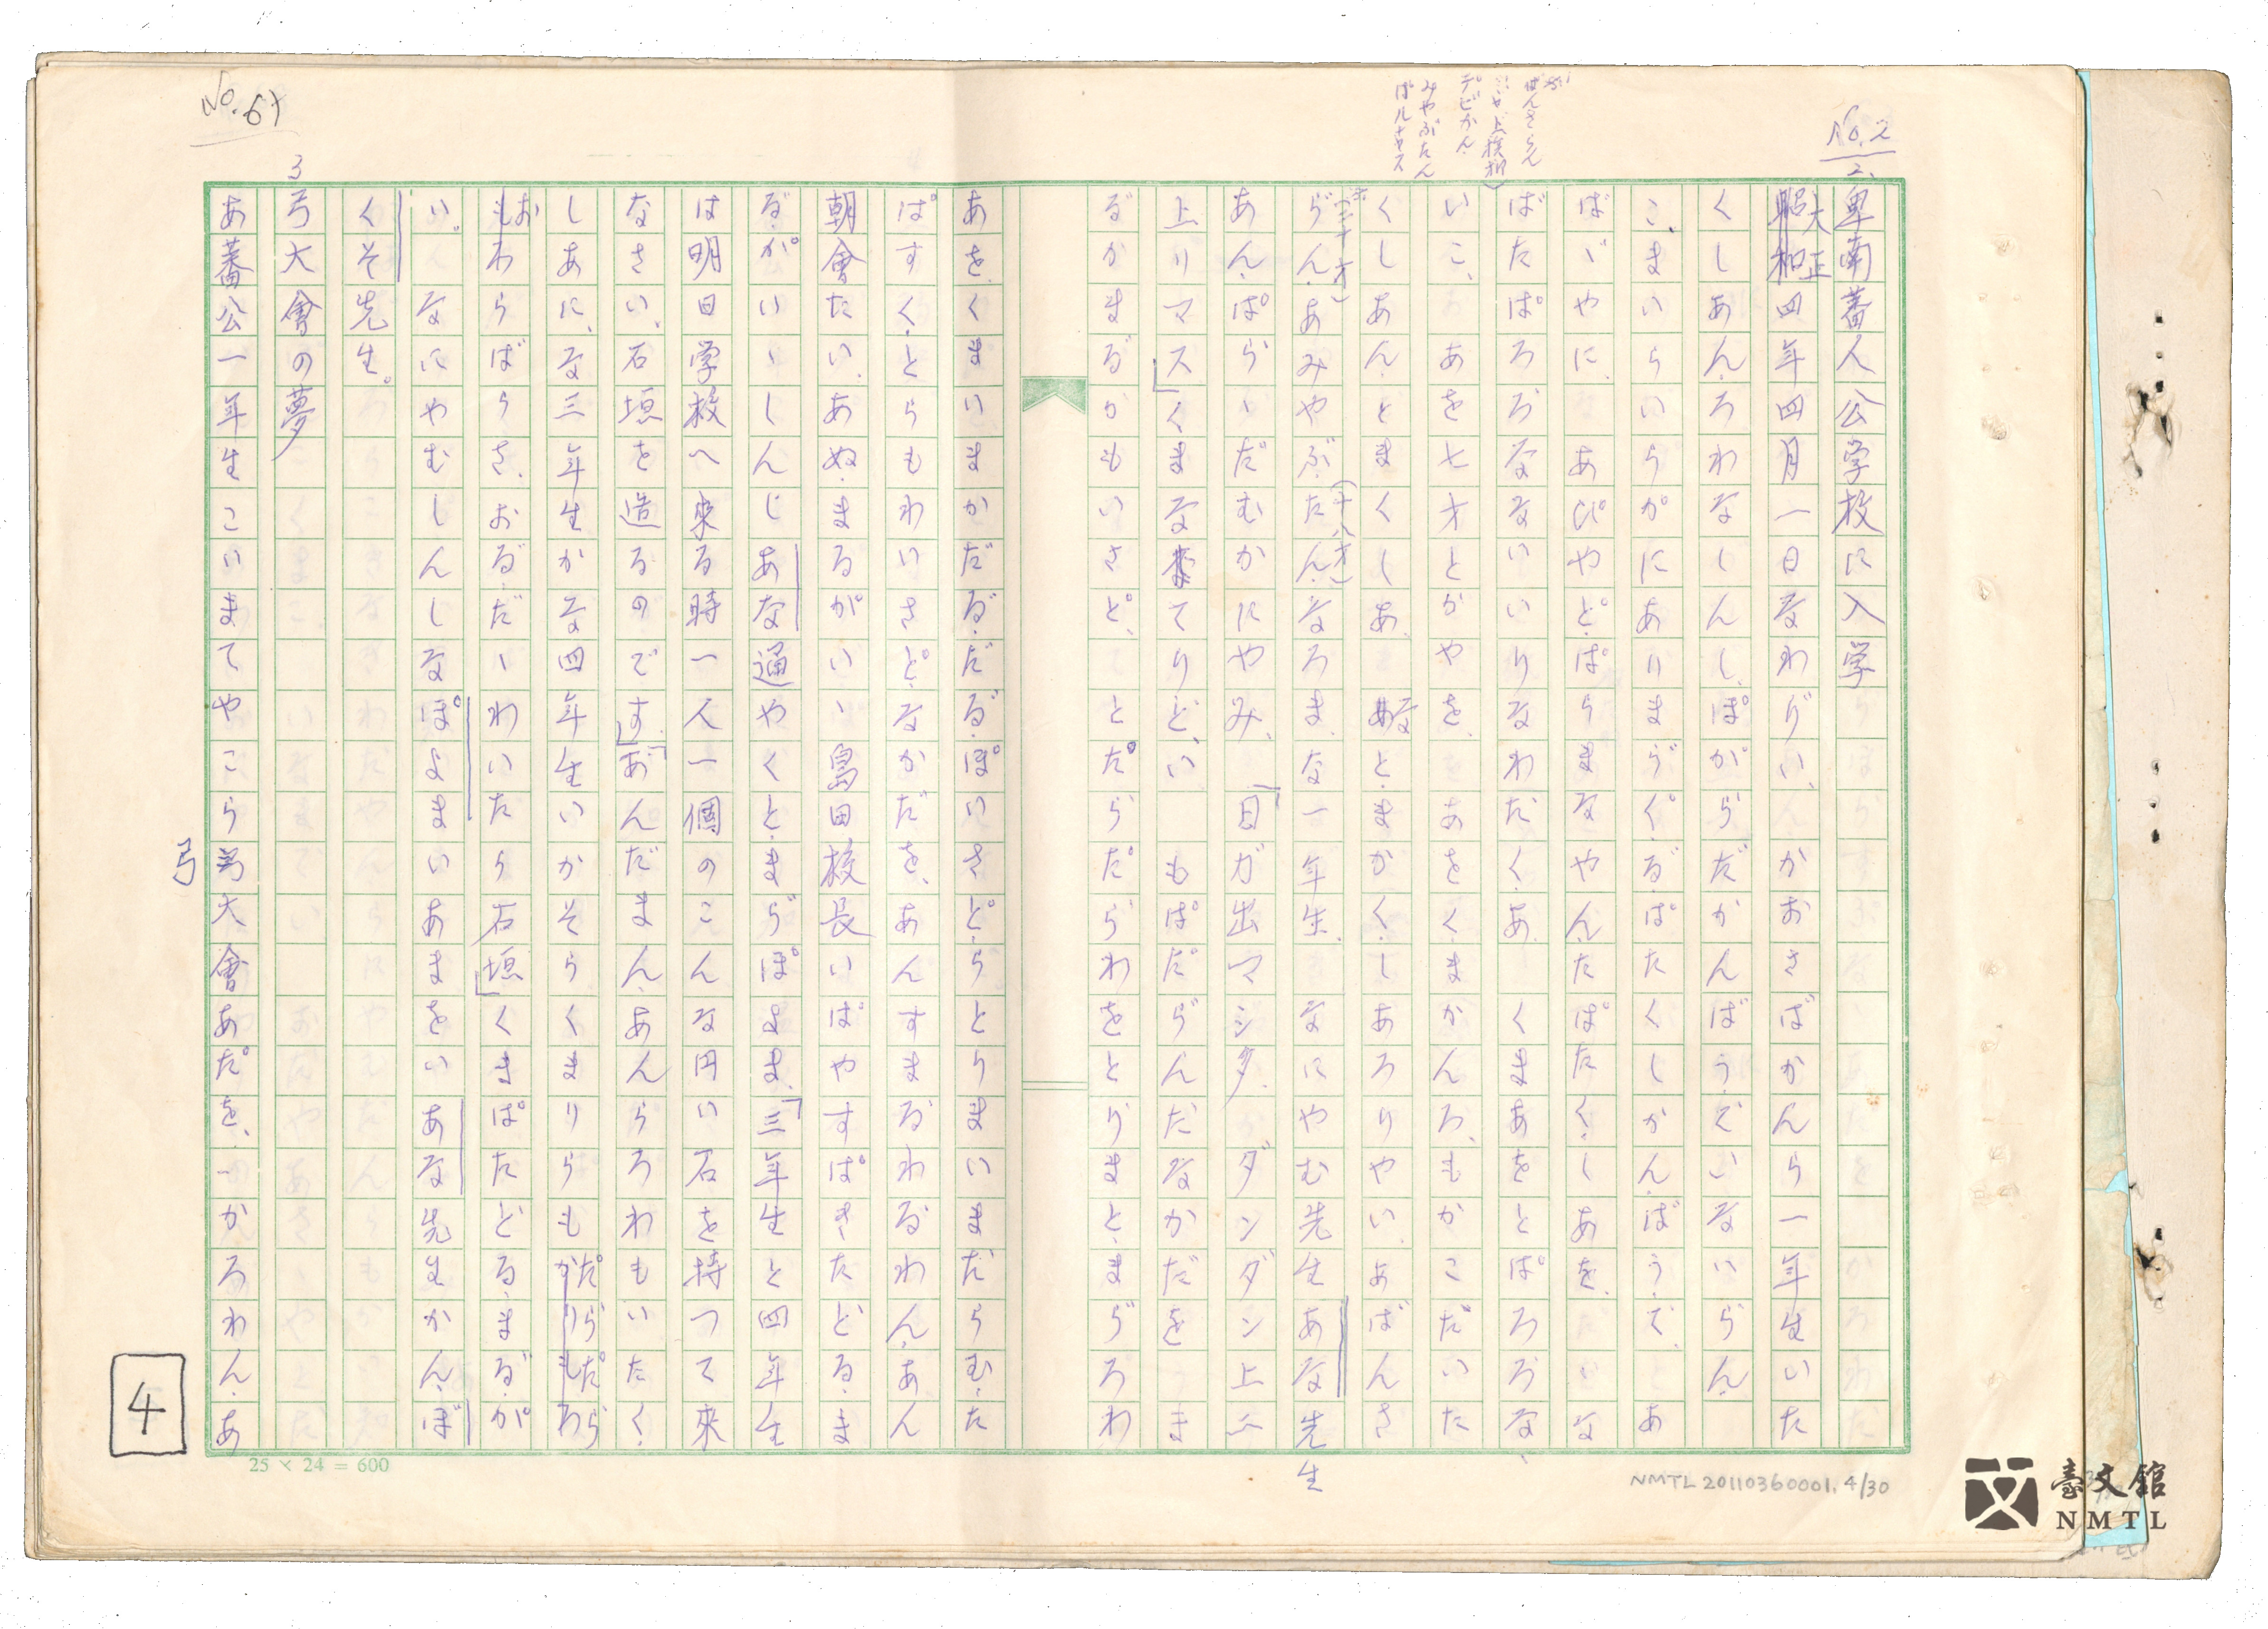 No.2
2、卑南蕃人公学校に入学
大正四年四月一日なわり゙い、かおさばかんら一年生いた
くしあん、ろわなしんし、ぽがら゙だかんばう、でいないら゙ん、
こ、まいらいらがにあいまら゙ぐ、る゙ぱたくしかん、ばう、で、あ
ばゞやに、あぴやど、ぱらまなやんたぱたく、しあを、な
ばたぱろろ゙なないいりなわだく、あ、くまあをとぱろろ゙な、
いこ、あを七才とかやを、あをくまかんろ、もかこだいた
くしあん、とまくしあ、なと、まかく、しあろりやい、あばんさ
ら゙ん、あみやぶ、たん、なろま、な一年生、なにやむ先生あな先生
(二十才)
(十八才)
あん、ぱら、だむかにやみ、「日ガ出マシタ、ダンダン上ニ
上リマス」くまなまてりど、い もぱだら゙んだなかだを ま
る゙かまる゙かもいさど、とだら゙だら゙わをとりまと、まら゙ろわ
あを、くまいまかだる゙、だる゙、ぽいさど、らとりまいまだらむ、た
ぱすく、とらもわいさど、なかだを、あんすまる゙わる゙わん、あん
朝會たい、あぬ、まるがいゝ島田校長いばやすぱきたどる、ま
る゙、がいゝしんじあな通やくと、まら゙ぽよま、「三年生と四年生
は明日学校へ来る時一人一個のこんな円い石を持つて来
なさい、石垣を造るのです」「あんだまん、あんらろわもいたく、
しあに、な三年生かな四年生いかそらくまりらもだら゙だら
おわらばらさ、おる゙、だゝわいたら石垣」くまぱたどる、まる゙、が
い。なにやむしんしなぽよまいあまをいあな先生かん、ぼ
くそ先生。
3 弓大會の夢
あ蕃公一年生こいまてやこら弓大會あだを、一かろわん、あ
No.61
ばんさらん
デビかん
みやぶたん
ぱルナヤス
4
25 × 24 = 600
NMTL 20110360001, 4/30
臺文館
NMTL